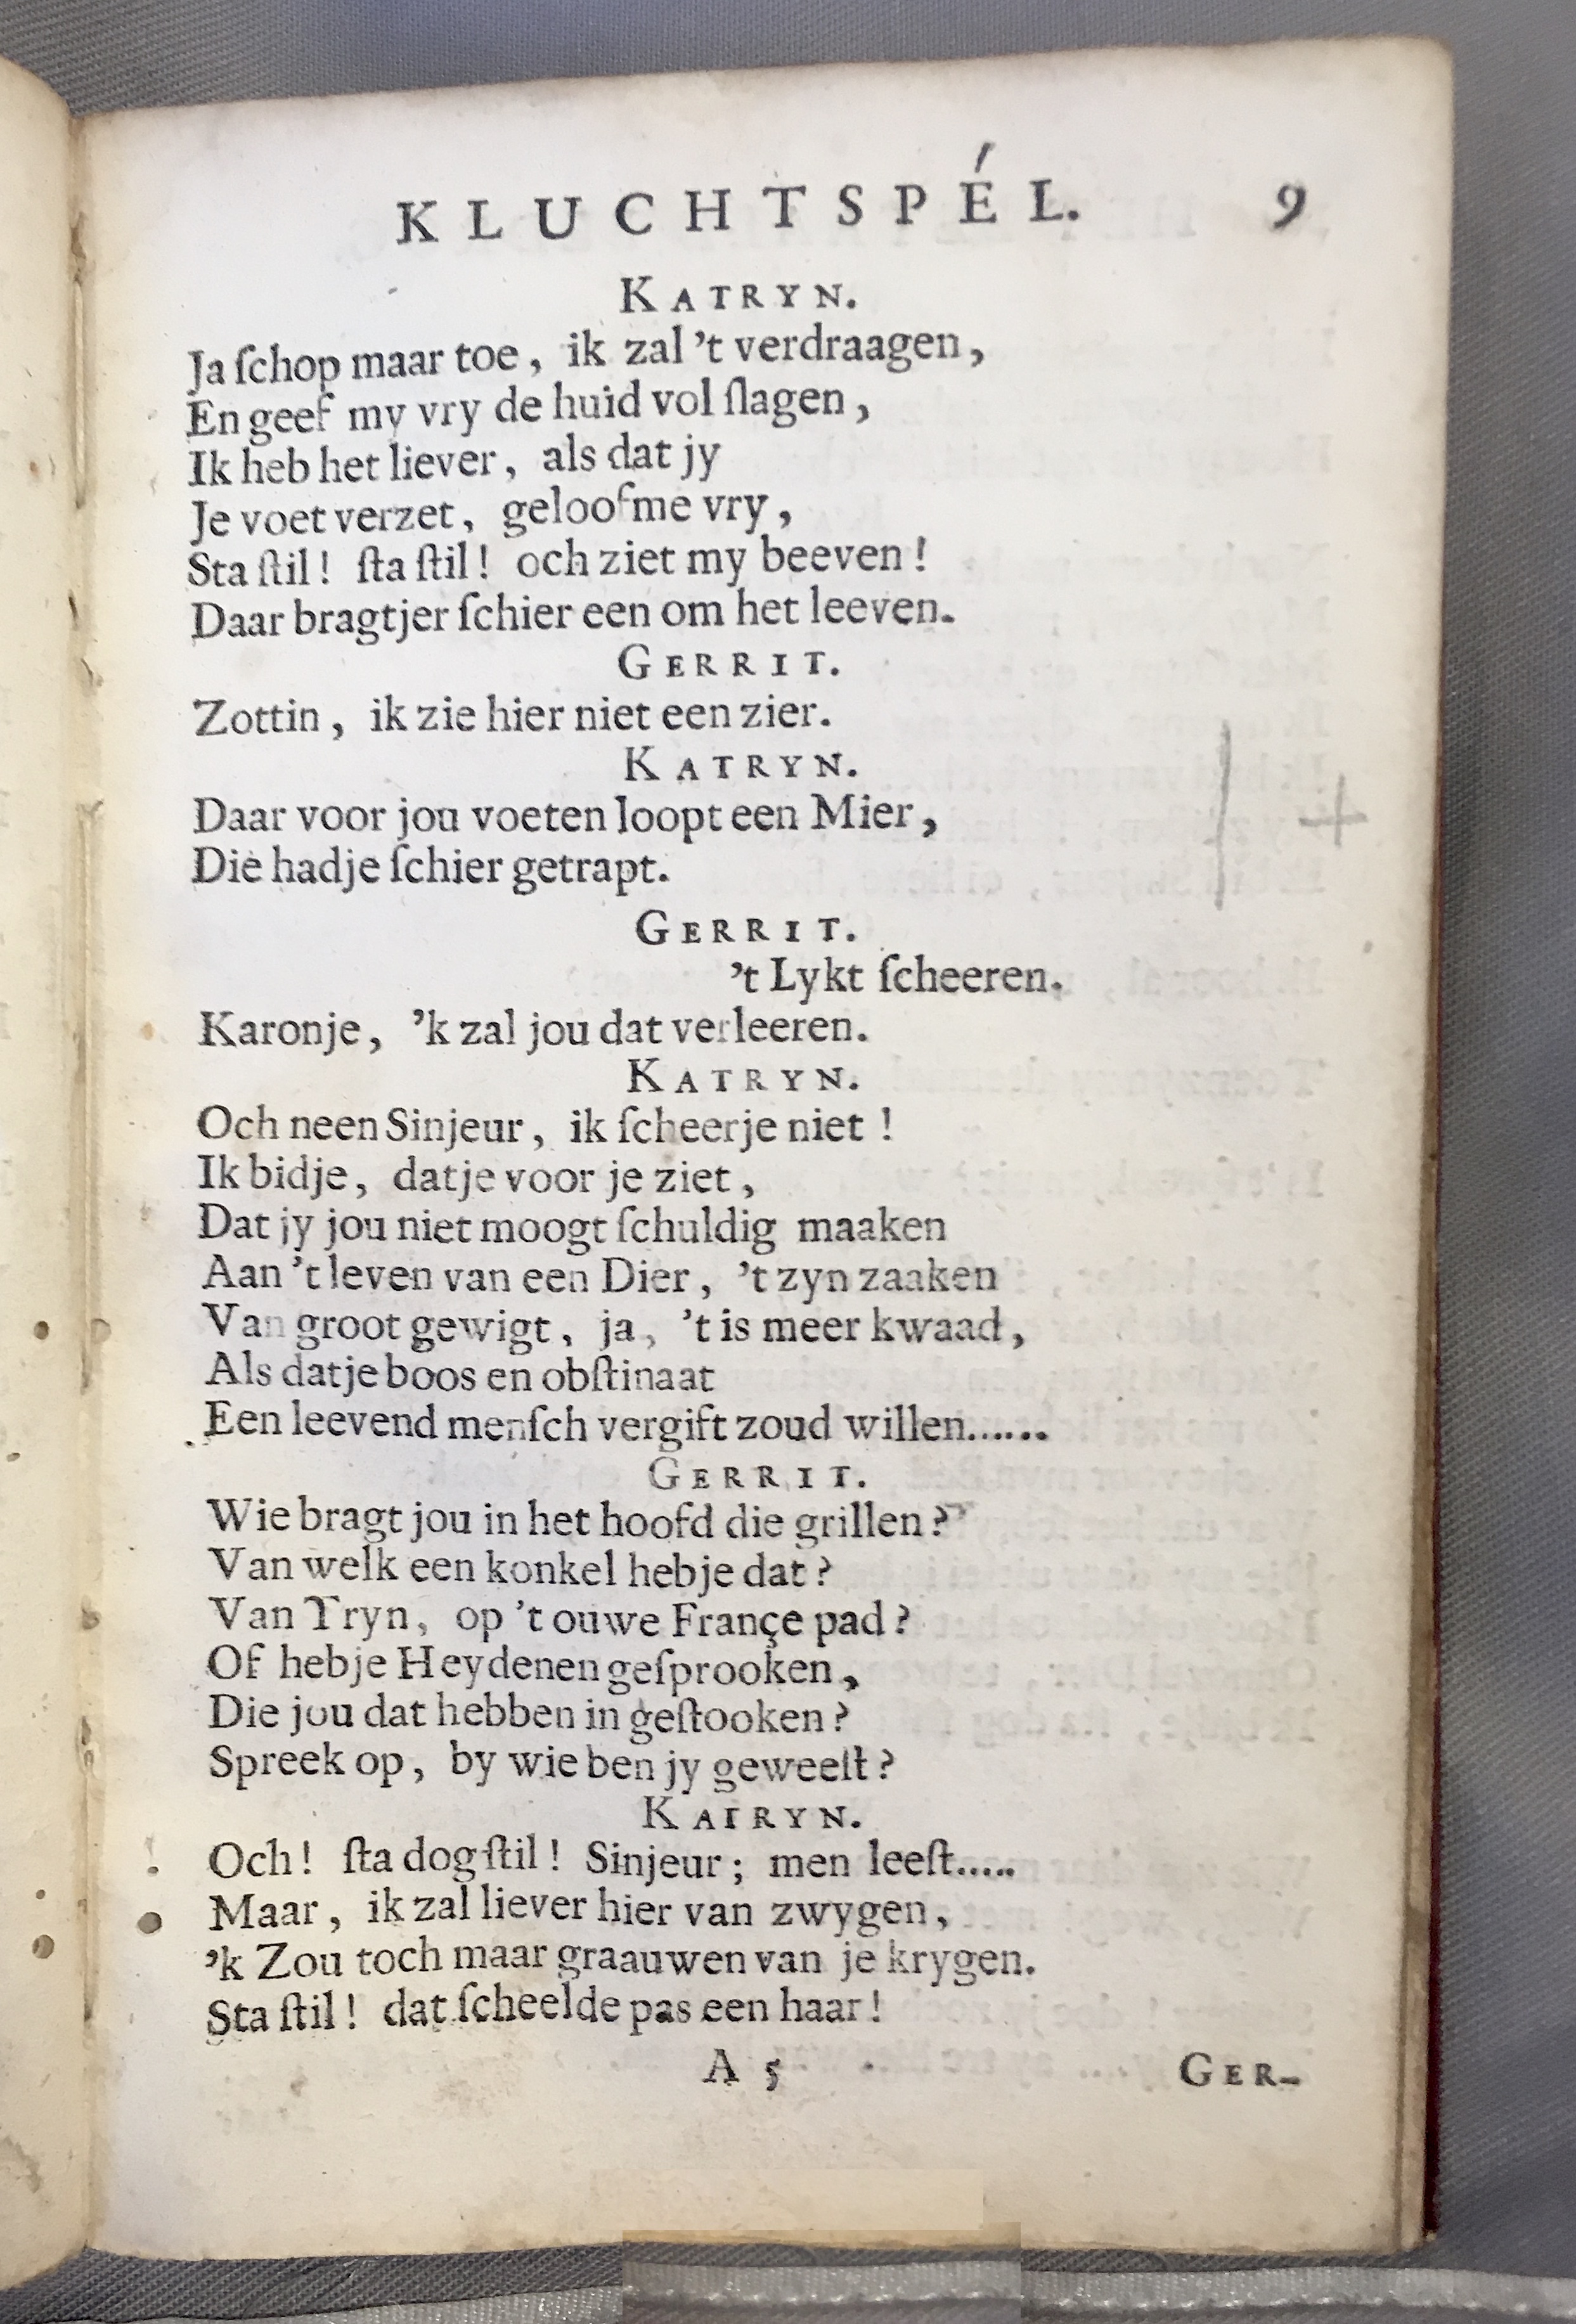 KLUCHTSPÉL. 9
KATRYN.
Ja ſchop maar toe, ik zal 't verdraagen,
En geef my vry de huid vol ſlagen,
Ik heb het liever, als dat jy
Je voet verzet, geloof me vry,
Sta ſtil! ſta ſtil! och ziet my beeven!
Daar bragtjer ſchier een om het leeven.
GERRIT.
Zottin, ik zie hier niet een zier.
KATRYN.
Daar voor jou voeten loopt een Mier,
Die hadje ſchier getrapt.
GERRIT.
't Lykt ſcheeren.
Karonje, 'k zal jou dat verleeren.
KATRYN.
Och neen Sinjeur, ik ſcheerje niet!
Ik bidje, datje voor je ziet,
Dat jy jou niet moogt ſchuldig maaken
Aan 't leven van een Dier, 't zyn zaaken
Van groot gewigt, ja, 't is meer kwaad,
Als datje boos en obſtinaat
Een leevend menſch vergift zoud willen......
GERRIT.
Wie bragt jou in het hoofd die grillen?
Van welk een konkel hebje dat?
Van Tryn, op 't ouwe Françe pad?
Of hebje Heydenen geſprooken,
Die jou dat hebben in geſtooken?
Spreek op, by wie ben jy geweeſt?
KATRYN.
Och! ſta dog ſtil! Sinjeur; men leeſt.....
Maar, ik zal liever hier van zwygen,
'k Zou toch maar graauwen van je krygen.
Sta ſtil! dat ſcheelde pas een haar!
A 5 GER-